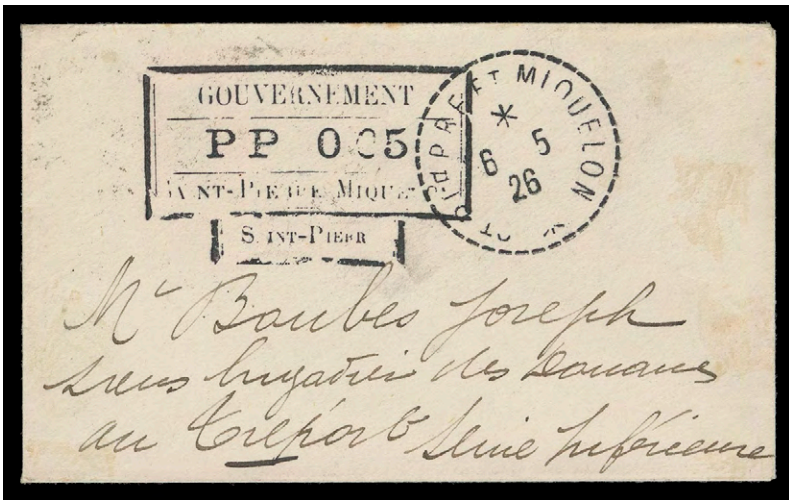 GOUVERNEMENT
PP 0 05
SAINT-PIERRE MIQUE
SAINT-PIERR
ST PIERRE ET MIQUELON
*
6 5
26
Mr Boubes Joseph
sous brigadier des Douanes
au Tréport Seine Inférieure